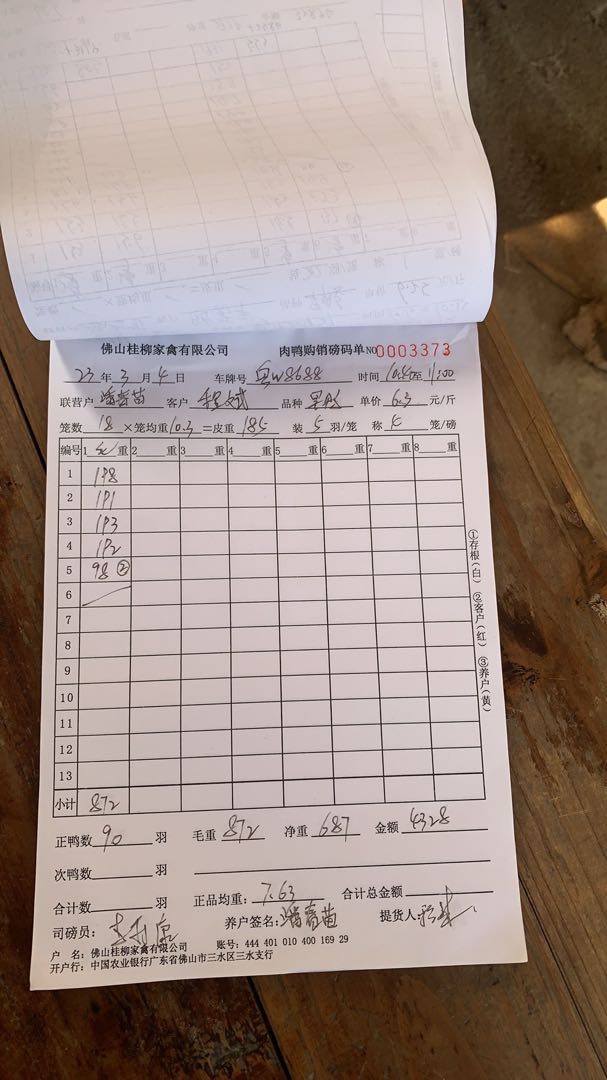 佛山桂柳家禽有限公司 肉鸭购销磅码单 NO 0003373
23 年 3 月 4 日 车牌号 粤W8688 时间 10:40至 11:00
联营户 潘喜苗 客户 品种 单价 6.3 元/斤
笼数 18 ×笼均重 10.3 =皮重 185 装 5 羽/笼 称 笼/磅
编号 1 毛 重 2 重 3 重 4 重 5 重 6 重 7 重 8 重
1 198
2 191
3 193
4 192
5 98 ②
6
7
8
9
10
11
12
13
小计 872
①存根(白) ②客户(红) ③养户(黄)
正鸭数 90 羽 毛重 872 净重 687 金额 4328
次鸭数 羽
合计数 羽 正品均重: 7.63 合计总金额
司磅员: 养户签名: 潘喜苗 提货人:
户 名: 佛山桂柳家禽有限公司 账号: 444 401 010 400 169 29
开户行: 中国农业银行广东省佛山市三水区三水支行